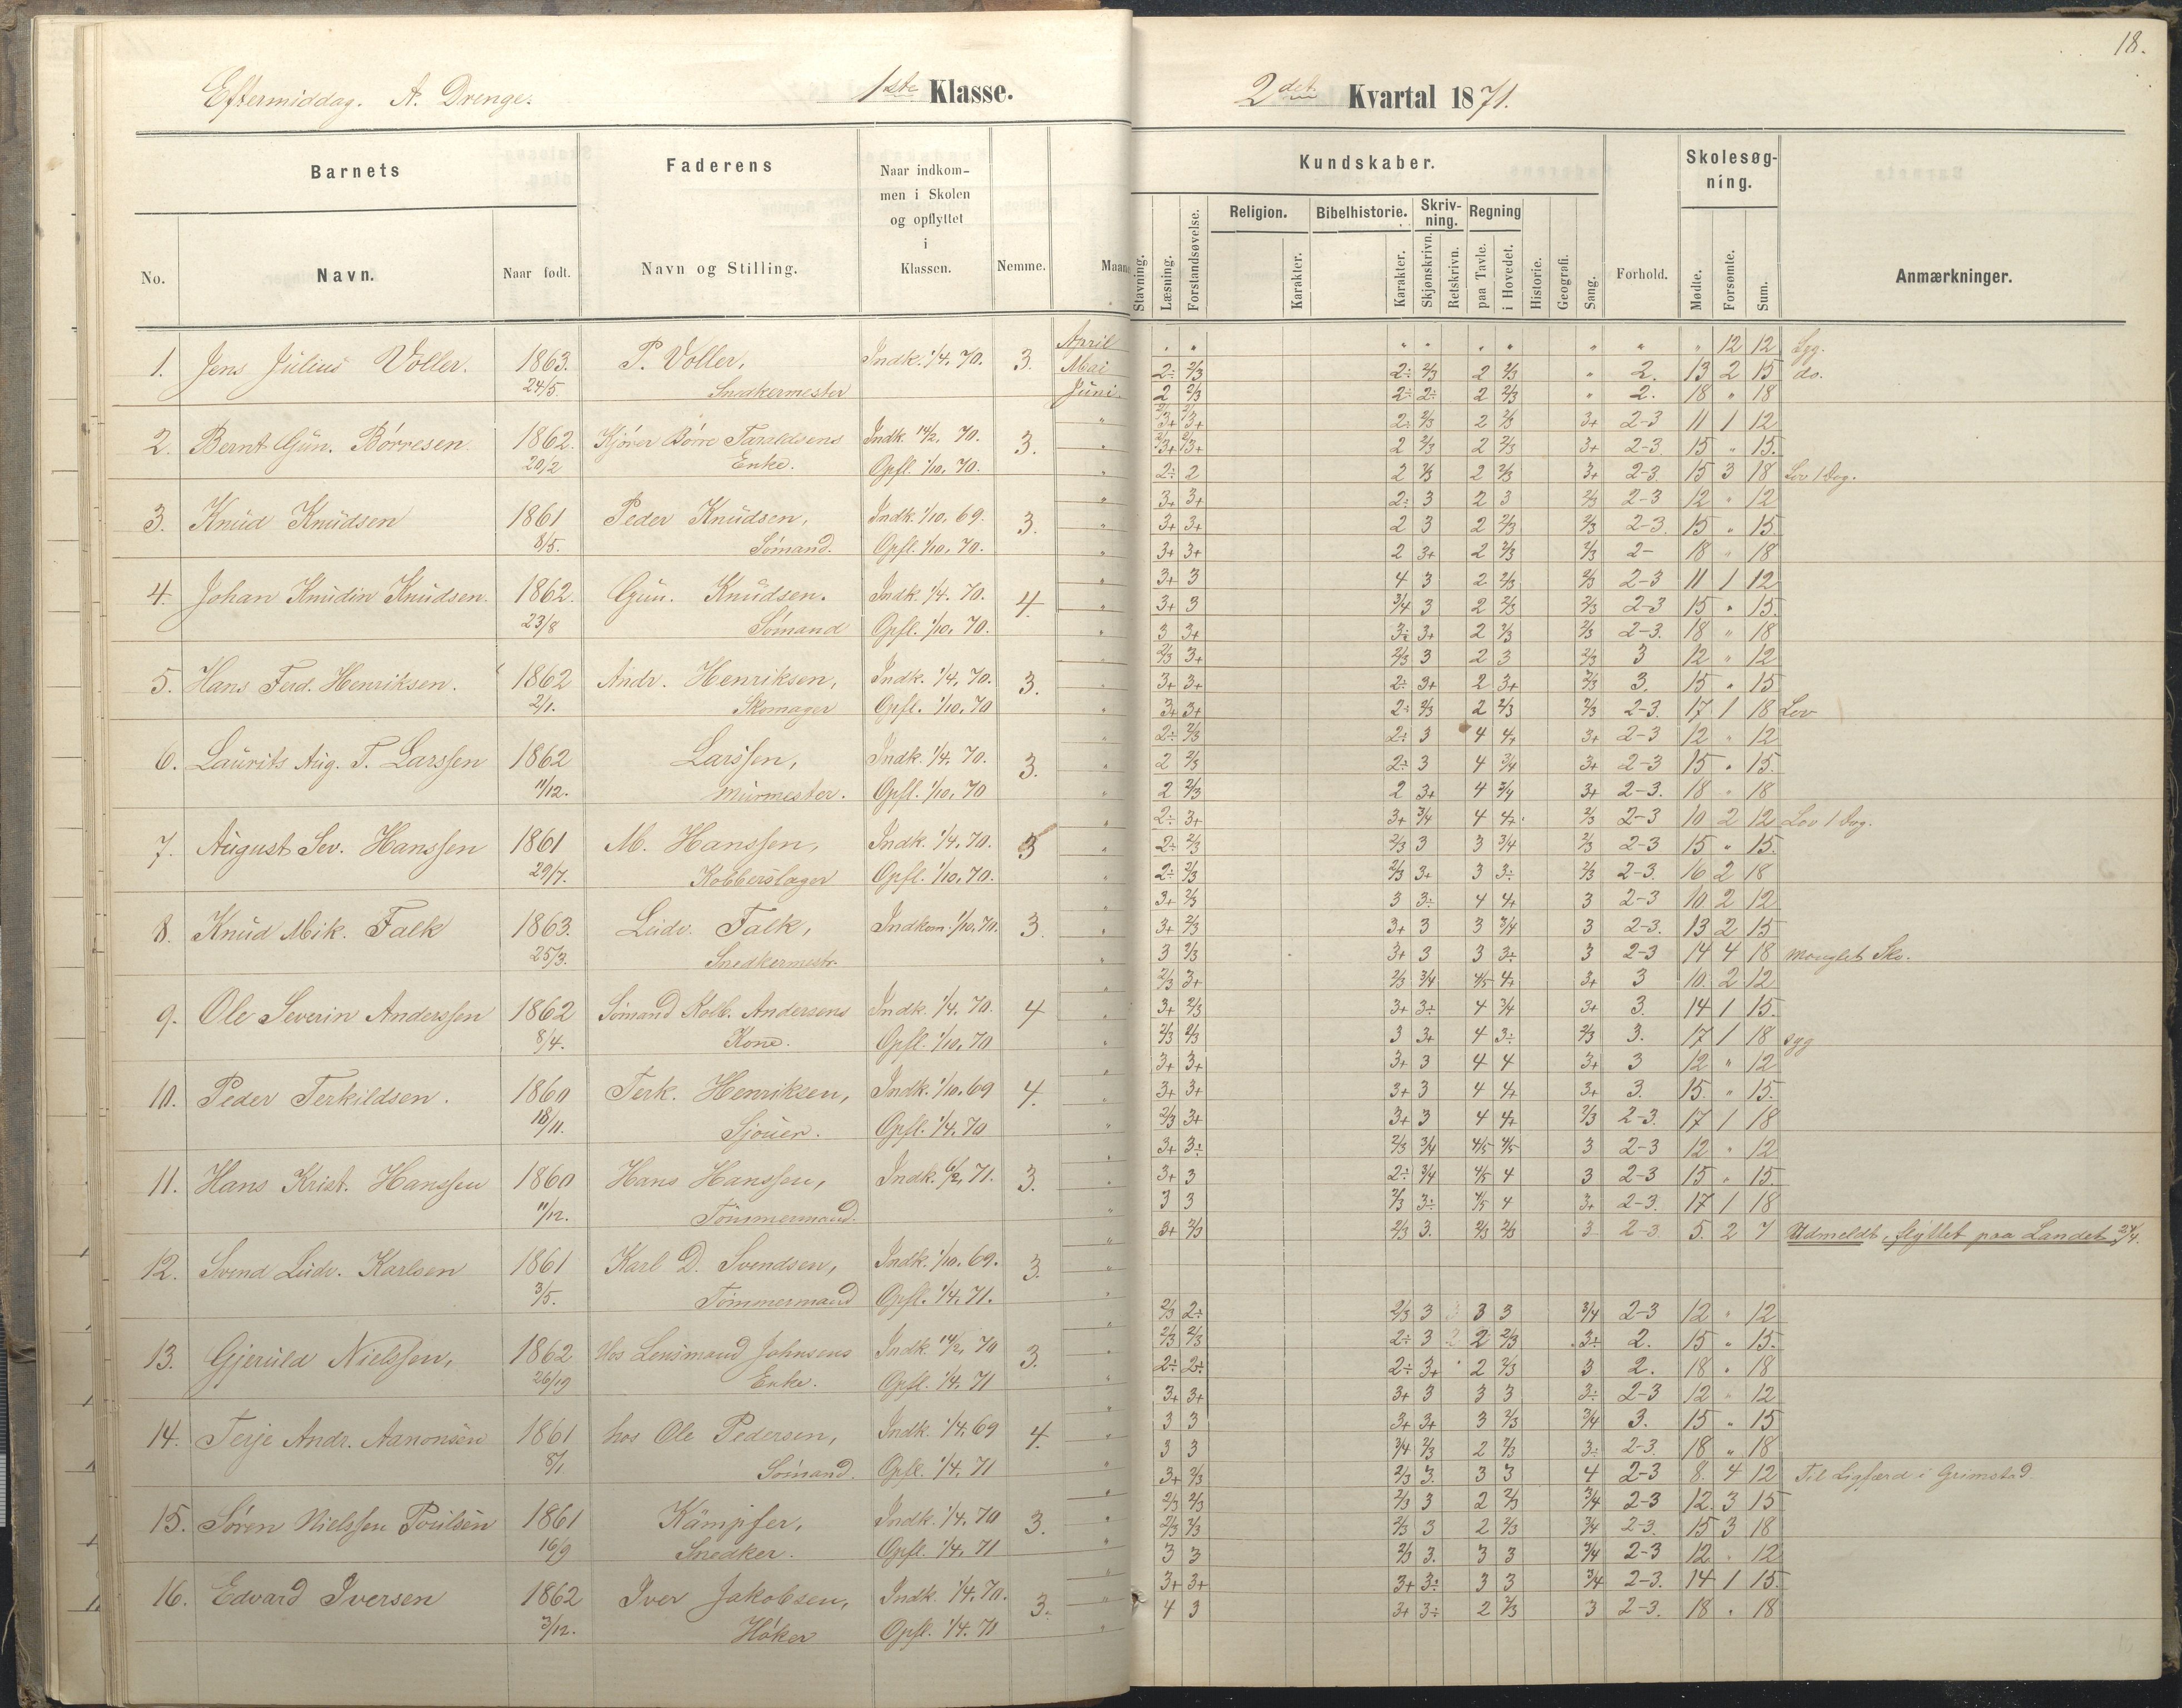 18.
Eftermiddag. A. Drenge. 1ste Klasse. 2det Kvartal 1871.
Barnets Faderens Naar indkommen i Skolen og opflyttet i Klassen. Nemme. Maan Kundskaber. Forhold. Skolesøgning. Anmærkninger.
No. Navn. Naar født. Navn og Stilling. Stavning. Læsning. Forstandsøvelse. Religion. Karakter. Bibelhistorie. Karakter. Skrivning. Skjønskrivn. Retskrivn. Regning paa Tavle. i Hovedet. Historie. Geografi. Sang. Mødte. Forsømte. Sum.
April " " " " " " " " " 12 12 Syg.
1. Jens Julius Voller. 1863. P. Voller, Indk. 1/4. 70. 3. Mai 2÷ 2/3 2÷ 2/3 2 2/3 " 2. 13 2 15 do.
24/5. Snedkermester Juni. 2 2/3 2÷ 2÷ 2 2/3 " 2. 18 " 18
" 2/3+ 2/3+ 2÷ 2/3 2 2/3 3+ 2-3 11 1 12
2. Bernt Gun. Børresen 1862. Kjører Børre Taraldsens Indk. 14/2. 70. 3. 2/3+ 2/3+ 2 2/3 2 2/3 3+ 2-3. 15 " 15.
20/2 Enke. Opfl. 1/10. 70. " 2÷ 2 2 2/3 2 2/3 3+ 2-3. 15 3 18 Lov 1 Dag.
" 3+ 3+ 2÷ 3 2 3 2/3 2-3 12 " 12
3. Knud Knudsen 1861 Peder Knudsen, Indk. 1/10. 69. 3. " 3+ 3+ 2 3 2 2/3 2/3 2-3. 15 " 15.
8/5. Sømand. Opfl. 1/10. 70. " 3+ 3+ 2 3+ 2 2/3 2/3 2- 18 " 18
" 3+ 3 4 3 2 2/3 2/3 2-3 11 1 12
4. Johan Knudin Knudsen. 1862. Gun. Knudsen. Indk. 1/4. 70. 4. " 3+ 3 3/4 3 2 2/3 2/3 2-3 15 " 15.
23/8 Sømand Opfl. 1/10. 70. " 3 3+ 3÷ 3+ 2 2/3 2/3 2-3. 18 " 18
" 2/3 3+ 2/3 3 2 3 2/3 3 12 " 12
5. Hans Ferd. Henriksen. 1862 Andr. Henriksen, Indk. 1/4. 70. 3. " 3+ 3+ 2÷ 3+ 2 3+ 2/3 3. 15 " 15
2/1. Skomager Opfl. 1/10. 70 " 3+ 3+ 2÷ 2/3 2 2/3 2/3 2-3. 17 1 18 Lov
" 2÷ 2/3 2÷ 3 4 4+ 3+ 2-3 12 " 12
6. Laurits Aug. T. Larssen 1862 Larssen, Indk. 1/4. 70. 3. " 2 2/3 2÷ 3 4 3/4 3+ 2-3 15 " 15.
11/12. Murmester. Opfl. 1/10. 70 " 2 2/3 2 3+ 4 3/4 3+ 2-3. 18 " 18
" 2÷ 3+ 3+ 3/4 4 4+ 2/3 2-3 10 2 12 Lov 1 Dag.
7. August Sev. Hanssen 1861 M. Hanssen, Indk. 1/4. 70. 3 " 2÷ 2/3 2/3 3 3 3/4 2/3 2-3 15 " 15.
29/7. Kobberslager Opfl. 1/10. 70. " 2÷ 2/3 2/3 3+ 3 3÷ 2/3 2-3. 16 2 18
" 3+ 2/3 3 3÷ 4 4+ 3 2-3 10 2 12
8. Knud Mik. Falk 1863. Ludv. Falk, Indkom. 1/10. 70. 3. " 3+ 2/3 3+ 3 3 3/4 3 2-3. 13 2 15
25/3. Snedkermestr. " 3 2/3 3+ 3 3 3÷ 3 2-3 14 4 18 manglet Sko.
" 2/3 3+ 2/3 3/4 4/5 4+ 3+ 3 10. 2 12
9. Ole Severin Anderssen 1862 Sømand Kolb. Andersens Indk. 1/4. 70. 4 " 3+ 2/3 3+ 3÷ 4 3/4 3+ 3. 14 1 15.
8/4. Kone. Opfl. 1/10. 70 " 2/3 2/3 3 3+ 4 3÷ 2/3 3. 17 1 18 syg
" 3+ 3+ 3+ 3 4 4 3+ 3 12 " 12
10. Peder Terkildsen. 1860 Terk. Henriksen, Indk. 1/10. 69 4. " 3+ 3+ 3+ 3 4 4+ 3+ 3. 15. " 15.
18/11. Sjouer. Opfl. 1/4. 70 " 2/3 3+ 3+ 3 4 4+ 2/3 2-3. 17 1 18
" 3+ 3÷ 2/3 3/4 4/5 4/5 3 2-3 12 " 12
11. Hans Krist. Hanssen 1860 Hans Hanssen, Indk. 6/2. 71. 3. " 3+ 3 2÷ 3/4 4/5 4 3 2-3 15 " 15.
11/12. Tømmermand. " 3 3 2/3 3÷ 4/5 4 3+ 2-3. 17 1 18
" 3+ 2/3 2/3 3. 2/3 2/3 3 2-3 5. 2 7 Udmeldt, flyttet paa Landet 24/4.
12. Svend Ludv. Karlsen 1861 Karl D. Svendsen, Indk. 1/10. 69. 3. "
3/5. Tømmermand Opfl. 1/4. 71. "
" 2/3 2÷ 2/3 3 3 3 3/4 2-3 12 " 12
13. Gjeruld Nielssen, 1862 Hos Lensmand Johnsens Indk 14/2. 70 3. " 2/3 2/3 2÷ 3 2 2/3 3÷ 2. 15 " 15.
26/19 Enke. Opfl. 1/4. 71 " 2÷ 2÷ 2÷ 3+ 2 2/3 3 2. 18 " 18
" 3+ 3+ 3+ 3 3 3 3÷ 2-3 12 " 12
14. Terje Andr. Aanonsen 1861 hos Ole Pedersen, Indk. 1/4. 69 4. " 3 3 3+ 3+ 3 2/3 3/4 3. 15 " 15
8/1. Sømand. Opfl. 1/4. 71 " 3 3 3/4 2/3 2 2/3 3÷ 2-3. 18 " 18
" 3+ 2/3 2/3 3. 3 3 4 2-3 8. 4 12 Til Ligfærd i Grimstad.
15. Søren Nielssen Poulsen 1861 Kämpfer, Indk. 1/4. 70 3. " 2/3 2/3 2/3 3 2 2/3 3/4 2-3 12. 3 15
16/9 Snedker. Opfl. 1/4. 71 " 2/3 2/3 2/3 3 2 2/3 3/4 2-3. 15 3 18
" 3 3 2/3 3. 3 3 3/4 2-3 12. " 12
16. Edvard Iversen 1862 Iver Jakobsen, Indk. 1/4. 70. 3. " 3+ 3+ 3+ 3÷ 3 3 3/4 2-3. 14 1 15.
3/12. Høker Opfl. 1/4. 71 " 4 3 3+ 3÷ 2 2/3 3 2-3. 18 " 18